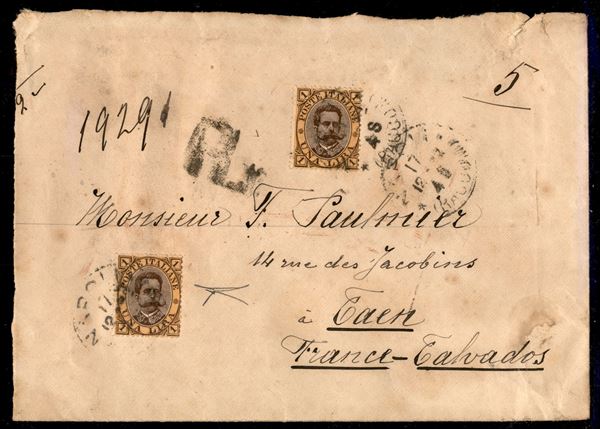 5
19291
R
POSTE ITALIANE
UNA LIRA
Monsieur F. Paulmier
14 rue des Jacobins
à Caen
France-Calvados
POSTE ITALIANE
UNA LIRA